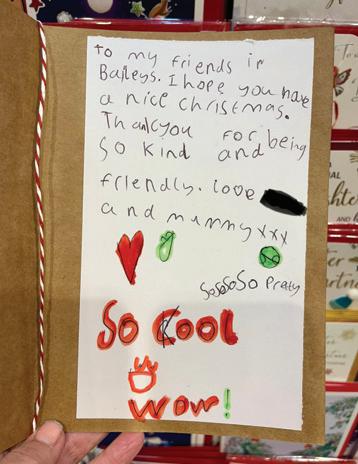 to my friends in
Baileys. I hope you have
a nice christmas.
Thankyou for being
so kind and
friendly. love
and mummy xxx
SoSoSoSo Pretty
So Cool
Wow!